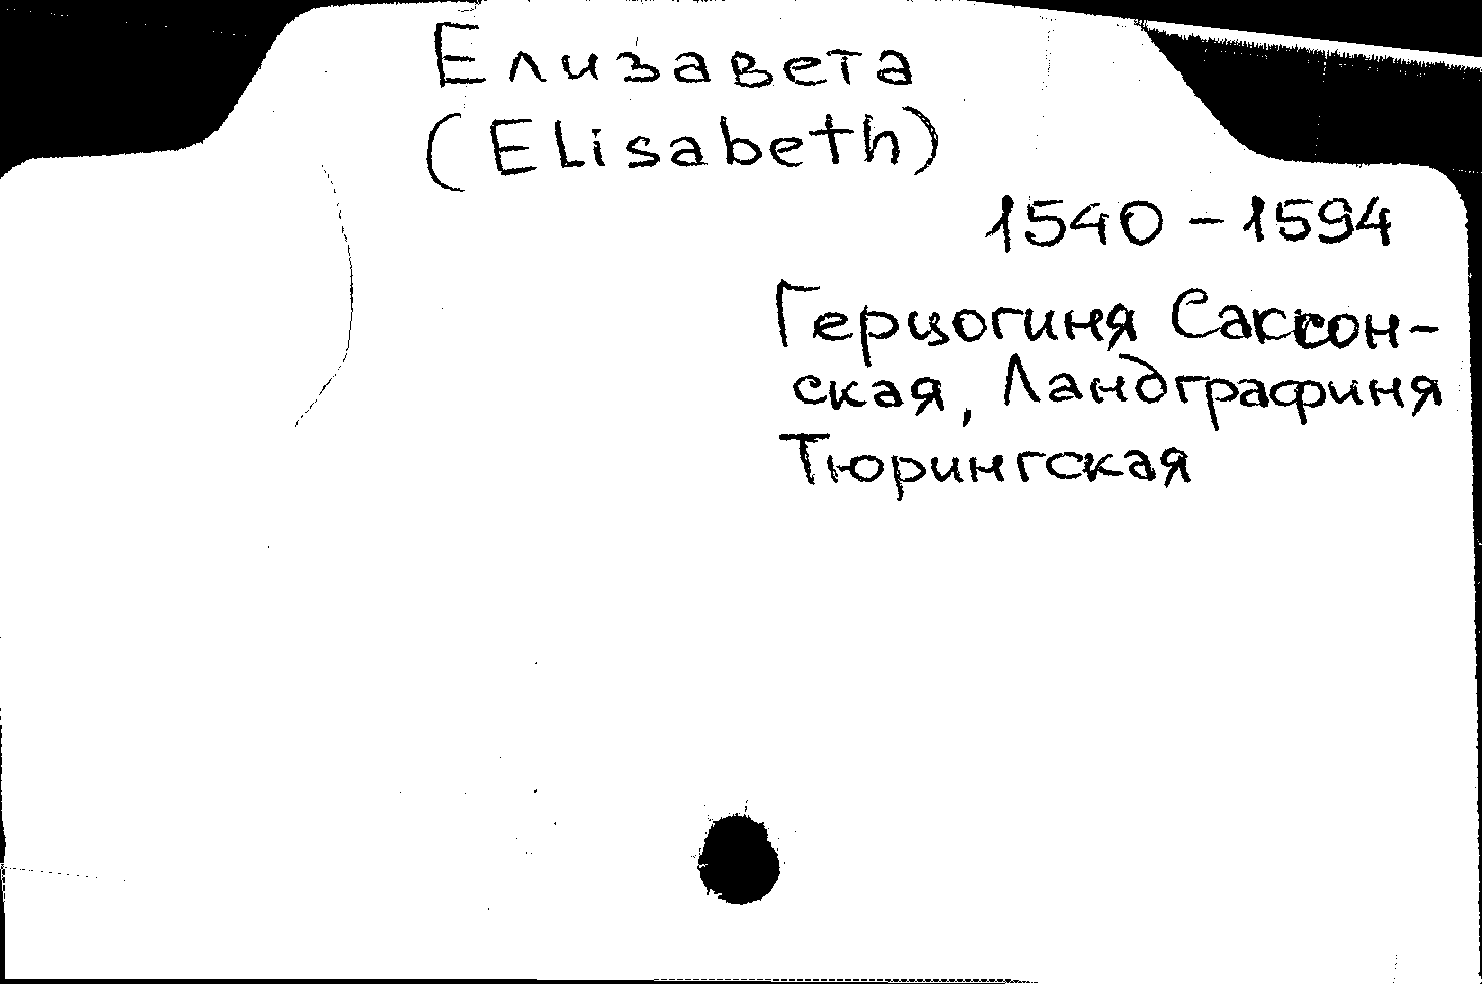 Елизавета
(Elisabeth)
1540 - 1594
Герцогиня Саксон-
ская, Ландграфиня
Тюрингская